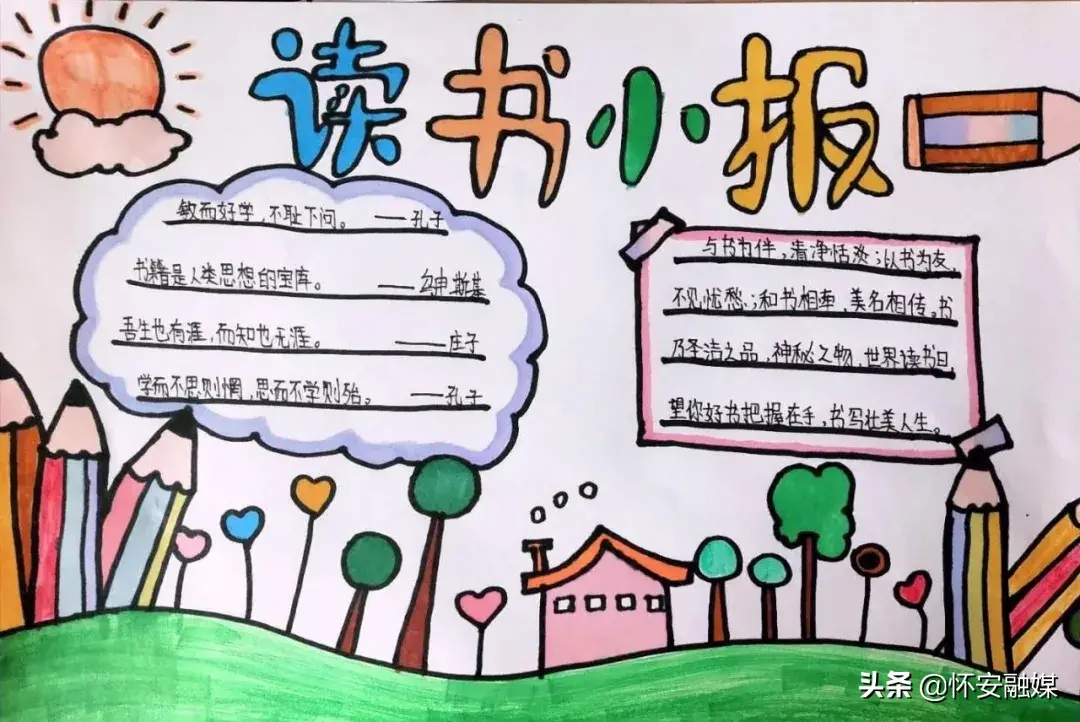 读书小报
敏而好学，不耻下问。 ——孔子
书籍是人类思想的宝库。 ——乌申斯基
吾生也有涯，而知也无涯。 ——庄子
学而不思则惘，思而不学则殆。 ——孔子
与书为伴，清净恬淡；以书为友，
不见忧愁；和书相牵，美名相传。书
乃圣洁之品，神秘之物，世界读书日，
望你好书把握在手，书写壮美人生。
头条 @怀安融媒